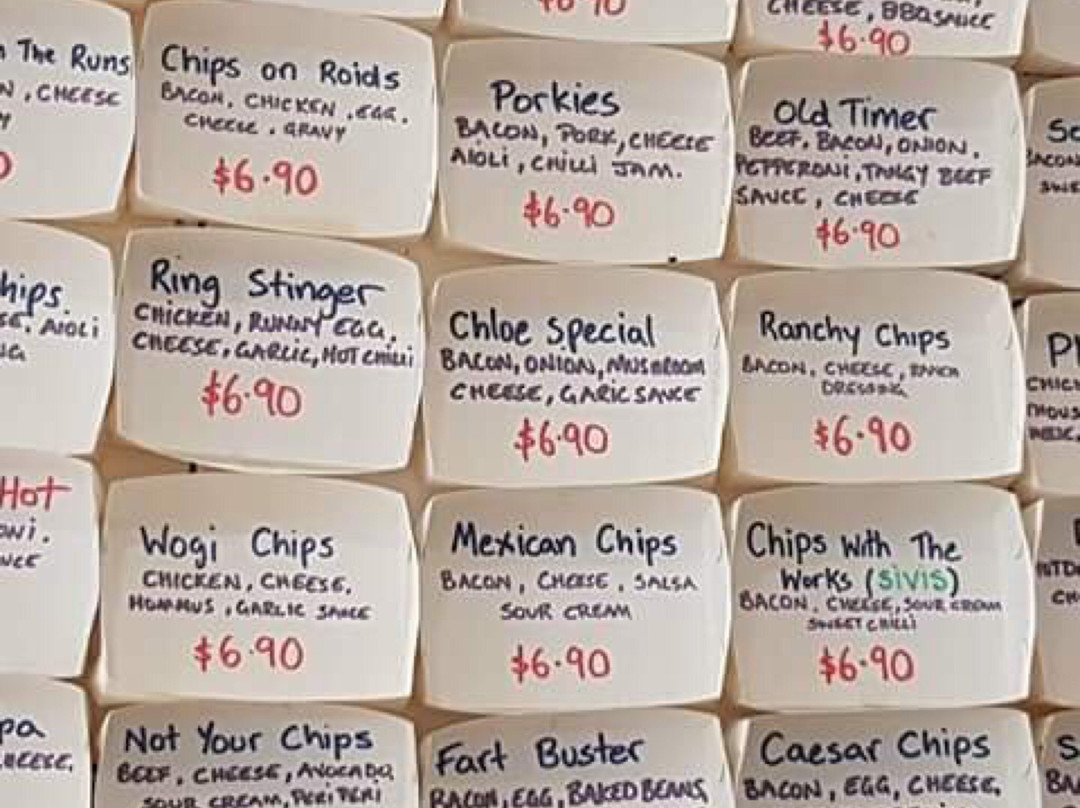 $6.90
CHEESE, BBQ SAUCE
$6.90
The Runs
, CHEESE
Chips on Roids
BACON, CHICKEN, EGG,
CHEESE, GRAVY
$6.90
Porkies
BACON, PORK, CHEESE
AIOLI, CHILLI JAM.
$6.90
Old Timer
BEEF, BACON, ONION,
PEPPERONI, TANGY BEEF
SAUCE, CHEESE
$6.90
AIOLI
Ring Stinger
CHICKEN, RUNNY EGG,
CHEESE, GARLIC, HOT CHILLI
$6.90
Chloe Special
BACON, ONION, MUSHROOM
CHEESE, GARIC SAUCE
$6.90
Ranchy Chips
BACON, CHEESE, RANCH
DRESSING
$6.90
Hot
Wogi Chips
CHICKEN, CHEESE,
HOMMUS, GARLIC SAUCE
$6.90
Mexican Chips
BACON, CHEESE, SALSA
SOUR CREAM
$6.90
Chips With The
Works (SIVIS)
BACON, CHEESE, SOUR CREAM
SWEET CHILLI
$6.90
Not Your Chips
BEEF, CHEESE, AVOCADO,
SOUR CREAM, PERI PERI
Fart Buster
BACON, EGG, BAKED BEANS,
Caesar Chips
BACON, EGG, CHEESE,